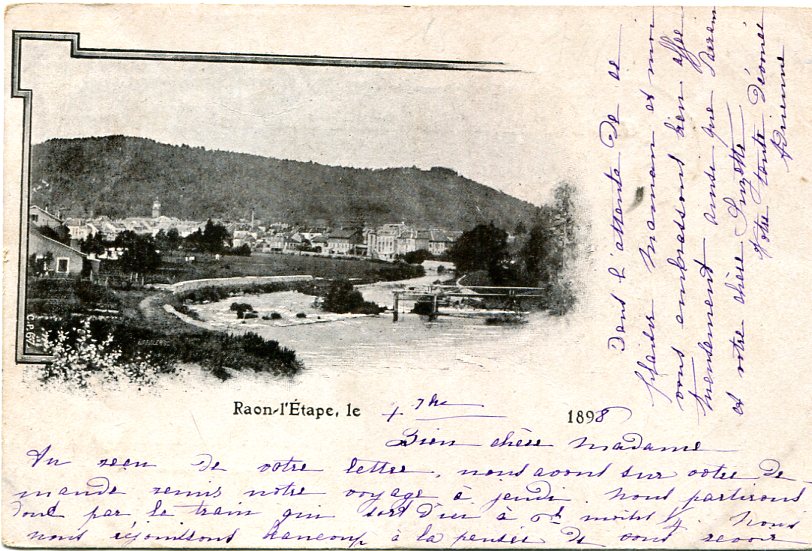 Raon-l'Étape, le 4 7bre 1898
Bien chère Madame
Au reçu de votre lettre, nous avons sur votre de
mande remis notre voyage à jeudi. Nous partirons
donc par le tram qui sort d'ici à moins ¼. Nous
nous réjouissons beaucoup à la pensée de vous revoir
Dans l'attente de ce
plaisir Maman et moi
vous embrassons bien affec
tueusement ainsi que
et votre chère Suzette
Votre toute dévouée
Adrienne